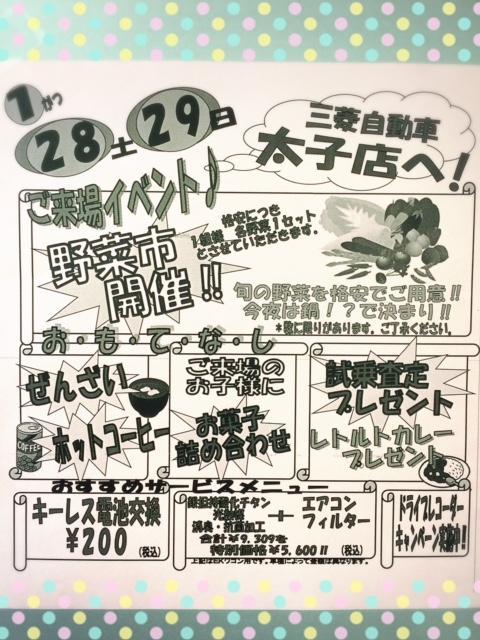 1がつ
28土29日
三菱自動車
太子店へ!
ご来場イベント♪
野菜市
開催!!
格安につき
1組様 各野菜1セット
とさせていただきます。
旬の野菜を格安でご用意!!
今夜は鍋!?で決まり!!
*数に限りがあります。ご了承ください。
お・も・て・な・し
ぜんざい
ホットコーヒー
COFFEE
ご来場の
お子様に
お菓子
詰め合わせ
試乗査定
プレゼント
レトルトカレー
プレゼント
おすすめサービスメニュー
キーレス電池交換
¥200
(税込)
銀担持酸化チタン
光触媒
消臭・抗菌加工
+
エアコン
フィルター
合計¥9,309を
特別価格¥5,600!!
(税込)
上記はEKワゴン用です。車種によって金額は異なります。
ドライブレコーダー
キャンペーン実施中!!